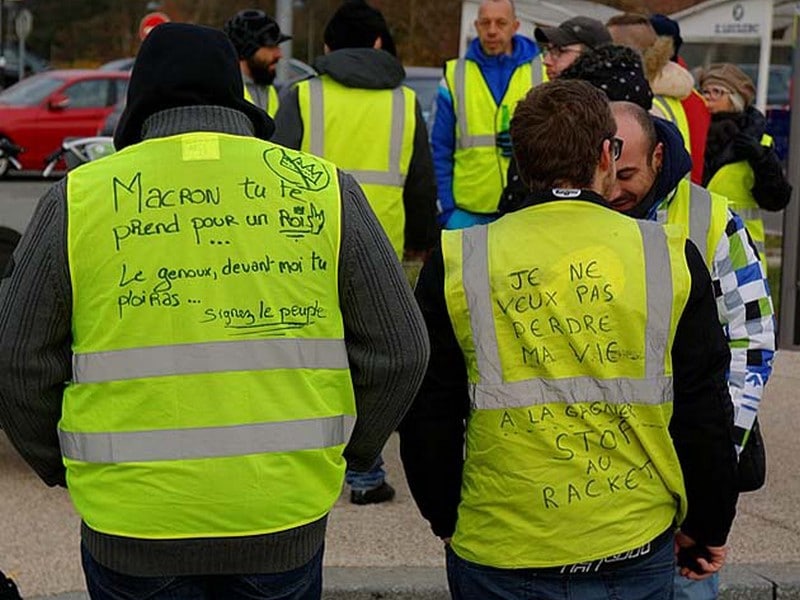 MACRON tu te
prend pour un Rois
...
Le genoux, devant moi tu
ploiras ...
Signez le peuple
JE NE
VEUX PAS
PERDRE
MA VIE...
A LA GAGNER
STOP
AU
RACKET